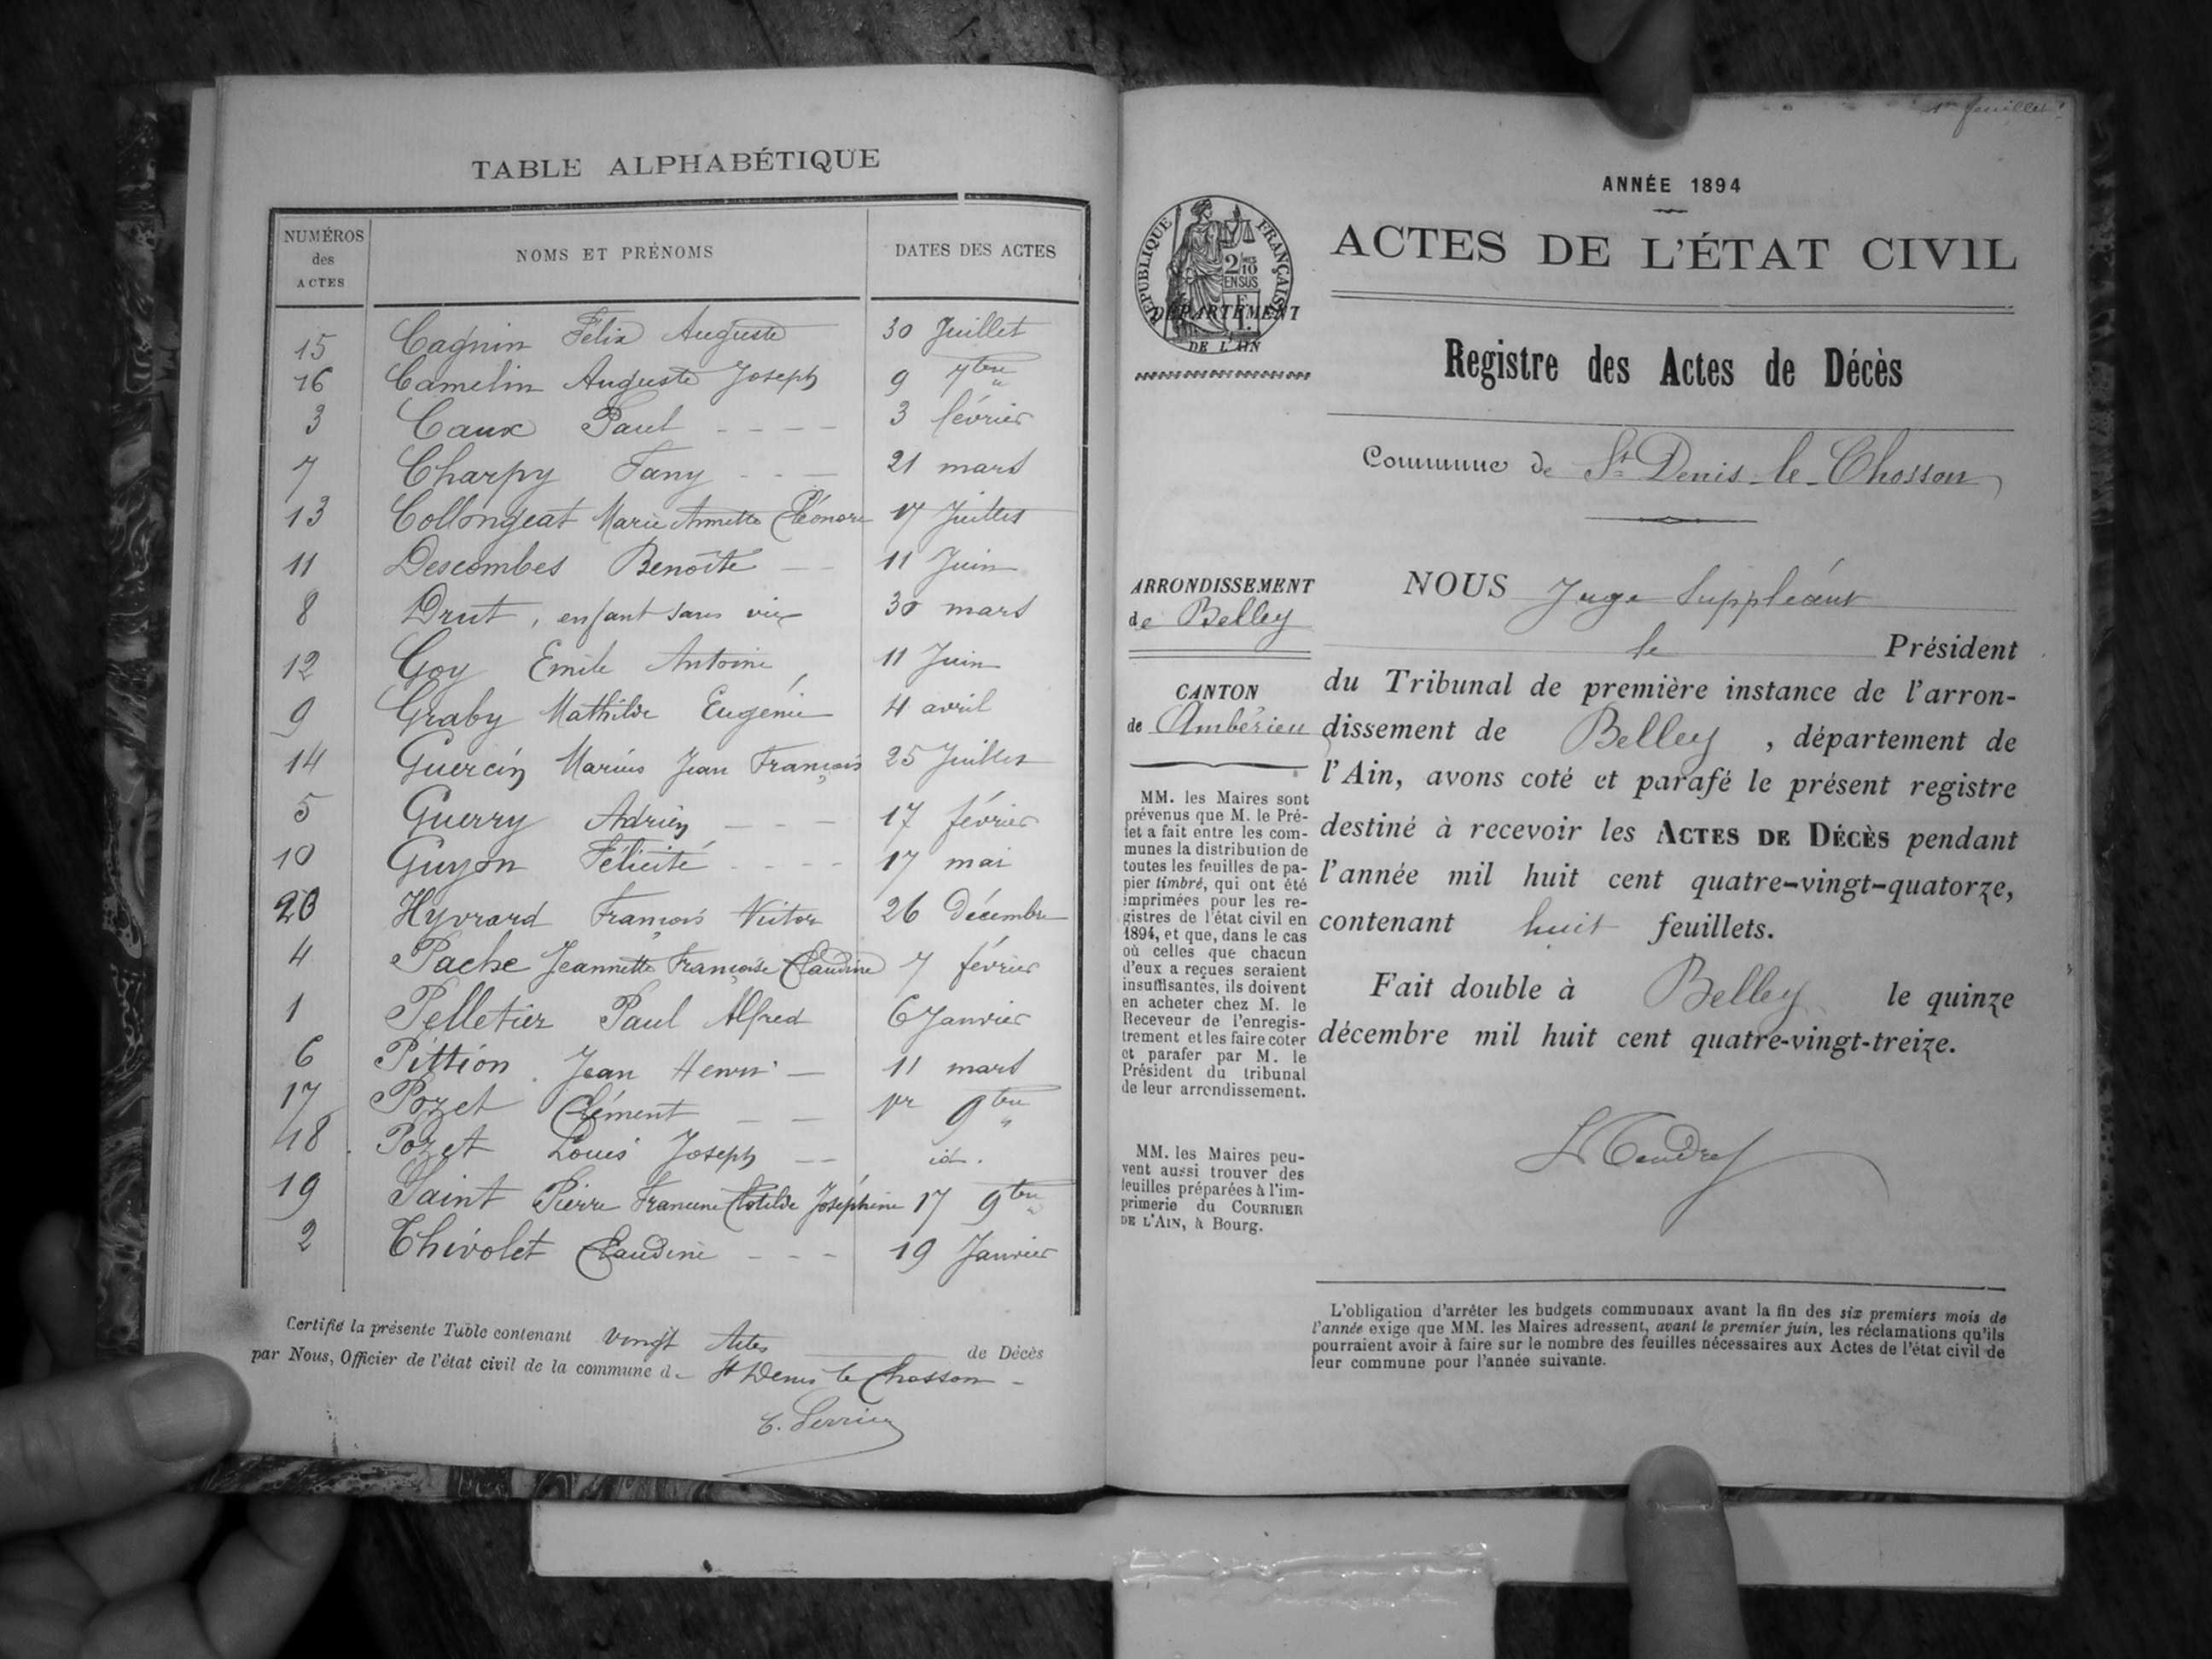 TABLE ALPHABÉTIQUE
NUMÉROS des ACTES NOMS ET PRÉNOMS DATES DES ACTES
15 Cagnin Félix Auguste 30 Juillet
16 Camelin Auguste Joseph 9 7bre
3 Caux Paul - - - - 3 février
7 Charpy Fany - - - 21 mars
13 Collongeat Marie Annette Eléonore 17 Juillet
11 Descombes Benoîte - - 11 Juin
8 Drut, enfant sans vie 30 mars
12 Goy Emile Antoine 11 Juin
9 Graby Mathilde Eugénie 4 avril
14 Guercin Marius Jean François 25 Juillet
5 Guerry Adrien - - - 17 février
10 Guyon Félicité - - - - 17 mai
20 Hyvrard François Victor 26 Décembre
4 Pache Jeannette Françoise Claudine 7 février
1 Pelletier Paul Alfred 6 Janvier
6 Pittion Jean Henri - 11 mars
17 Pozet Clément - - 1er 9bre
18 Pozet Louis Joseph - - id.
19 Saint Pierre Francine Clotilde Joséphine 17 9bre
2 Thivolet Claudine - - - 19 Janvier
Certifié la présente Table contenant vingt Actes de Décès
par Nous, Officier de l'état civil de la commune de St Denis le Chosson -
1er feuillet
ANNÉE 1894
RÉPUBLIQUE FRANÇAISE
2/10 EN SUS
DÉPARTEMENT
DE L'AIN
ACTES DE L'ÉTAT CIVIL
Registre des Actes de Décès
Commune de St Denis-le-Chosson
ARRONDISSEMENT
de Belley
CANTON
de Ambérieu
MM. les Maires sont
prévenus que M. le Pré-
fet a fait entre les com-
munes la distribution de
toutes les feuilles de pa-
pier timbré, qui ont été
imprimées pour les re-
gistres de l'état civil en
1894, et que, dans le cas
où celles que chacun
d'eux a reçues seraient
insuffisantes, ils doivent
en acheter chez M. le
Receveur de l'enregis-
trement et les faire coter
et parafer par M. le
Président du tribunal
de leur arrondissement.
MM. les Maires peu-
vent aussi trouver des
feuilles préparées à l'im-
primerie du COURRIER
DE L'AIN, à Bourg.
NOUS Juge Suppléant
le Président
du Tribunal de première instance de l'arron-
dissement de Belley, département de
l'Ain, avons coté et parafé le présent registre
destiné à recevoir les ACTES DE DÉCÈS pendant
l'année mil huit cent quatre-vingt-quatorze,
contenant huit feuillets.
Fait double à Belley le quinze
décembre mil huit cent quatre-vingt-treize.
L'obligation d'arrêter les budgets communaux avant la fin des six premiers mois de
l'année exige que MM. les Maires adressent, avant le premier juin, les réclamations qu'ils
pourraient avoir à faire sur le nombre des feuilles nécessaires aux Actes de l'état civil de
leur commune pour l'année suivante.